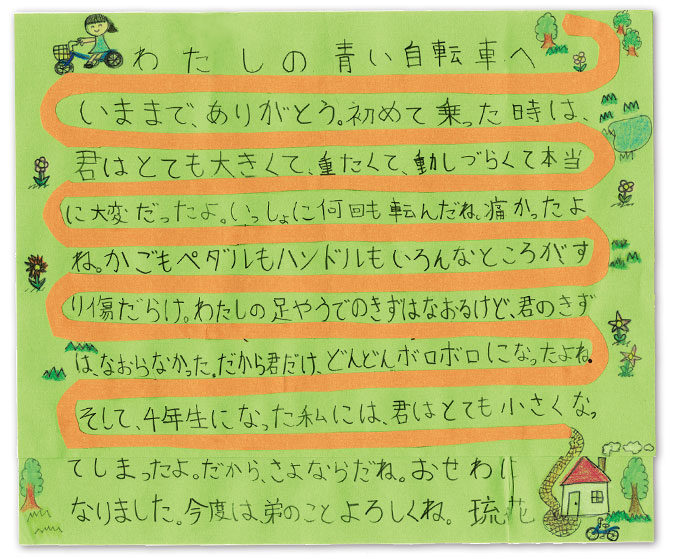 わたしの青い自転車へ
いままで、ありがとう。初めて乗った時は、
君はとても大きくて、重たくて、動しづらくて本当
に大変だったよ。いっしょに何回も転んだね。痛かったよ
ね。かごもペダルもハンドルもいろんなところがす
り傷だらけ。わたしの足やうでのきずはなおるけど、君のきず
は、なおらなかった。だから君だけ、どんどんボロボロになったよね。
そして、4年生になった私には、君はとても小さくなっ
てしまったよ。だから、さよならだね。おせわに
なりました。今度は、弟のことよろしくね。琉花